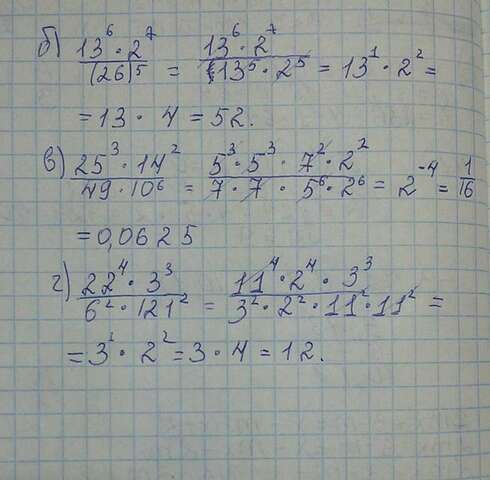 б) 13⁶ · 2⁷ / (26)⁵ = 13⁶ · 2⁷ / 13⁵ · 2⁵ = 13¹ · 2² =
= 13 · 4 = 52.
в) 25³ · 14² / 49 · 10⁶ = 5³ · 5³ · 7² · 2² / 7 · 7 · 5⁶ · 2⁶ = 2⁻⁴ = 1/16
= 0,0625
г) 22⁴ · 3³ / 6² · 121² = 11⁴ · 2⁴ · 3³ / 3² · 2² · 11² · 11² =
= 3¹ · 2² = 3 · 4 = 12.